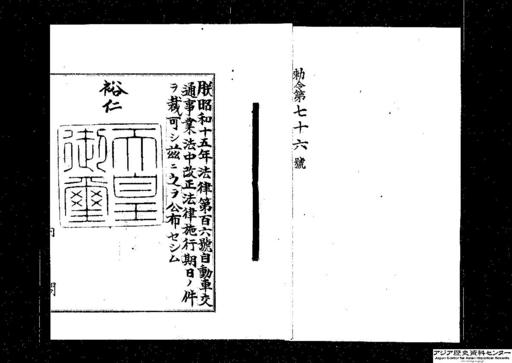 勅令第七十六號
朕昭和十五年法律第百六號自動車交
通事業法中改正法律施行期日ノ件
ヲ裁可シ茲ニ之ヲ公布セシム
裕仁
天皇
御璽
内
閣
アジア歴史資料センター
Japan Center for Asian Historical Records